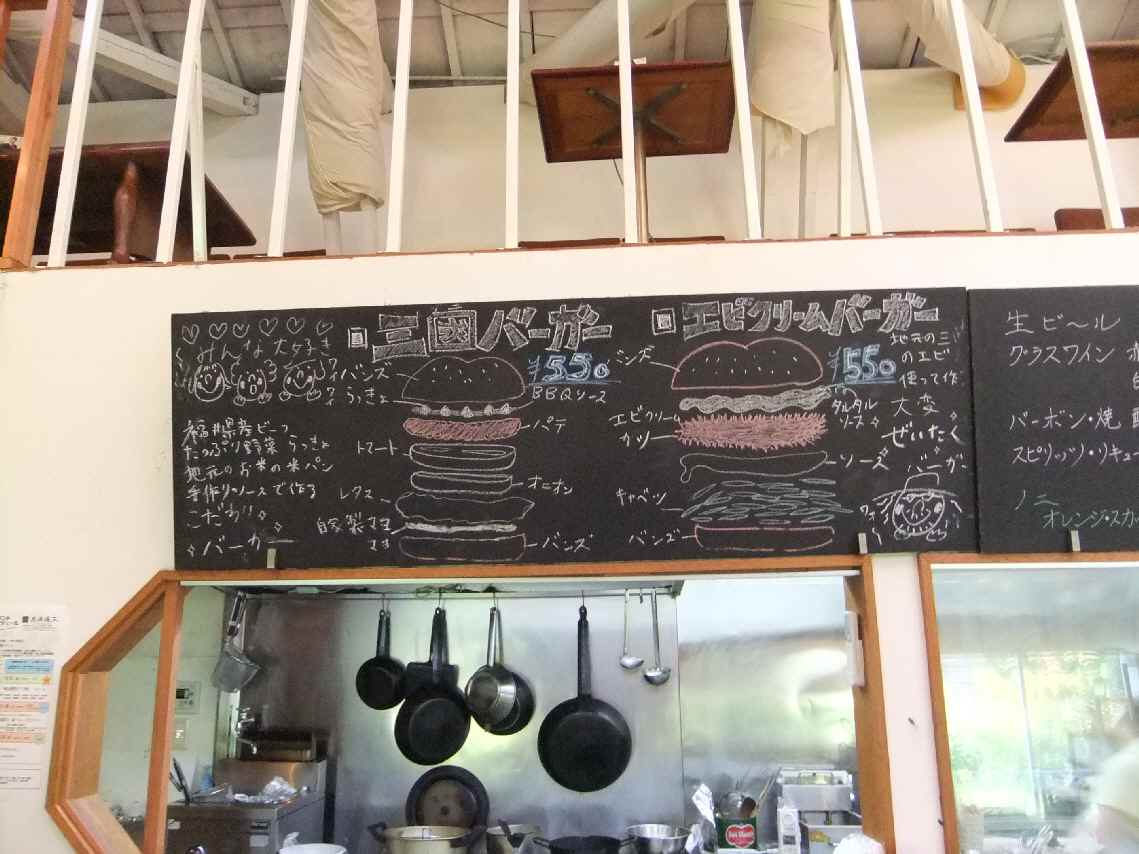 みんな大好き
三國バーガー
¥550
BBQソース
バンズ
らっきょ
パテ
トマート
オニオン
レタス
自家製マヨ
バンズ
福井県産ビーフ
たっぷり野菜 らっきょ
地元のお米の米パン
手作りソースで作る
こだわり
バーガー
エビクリームバーガー
¥550
バンズ
タルタル
ソース
エビクリーム
カツ
ソーズ
キャベツ
バンズ
地元の三
のエビ
使って作
大変
ぜいたく
バーガー
生ビール
グラスワイン
バーボン・焼
スピリッツ・リキュー
ノニ
オレンジ・スカ